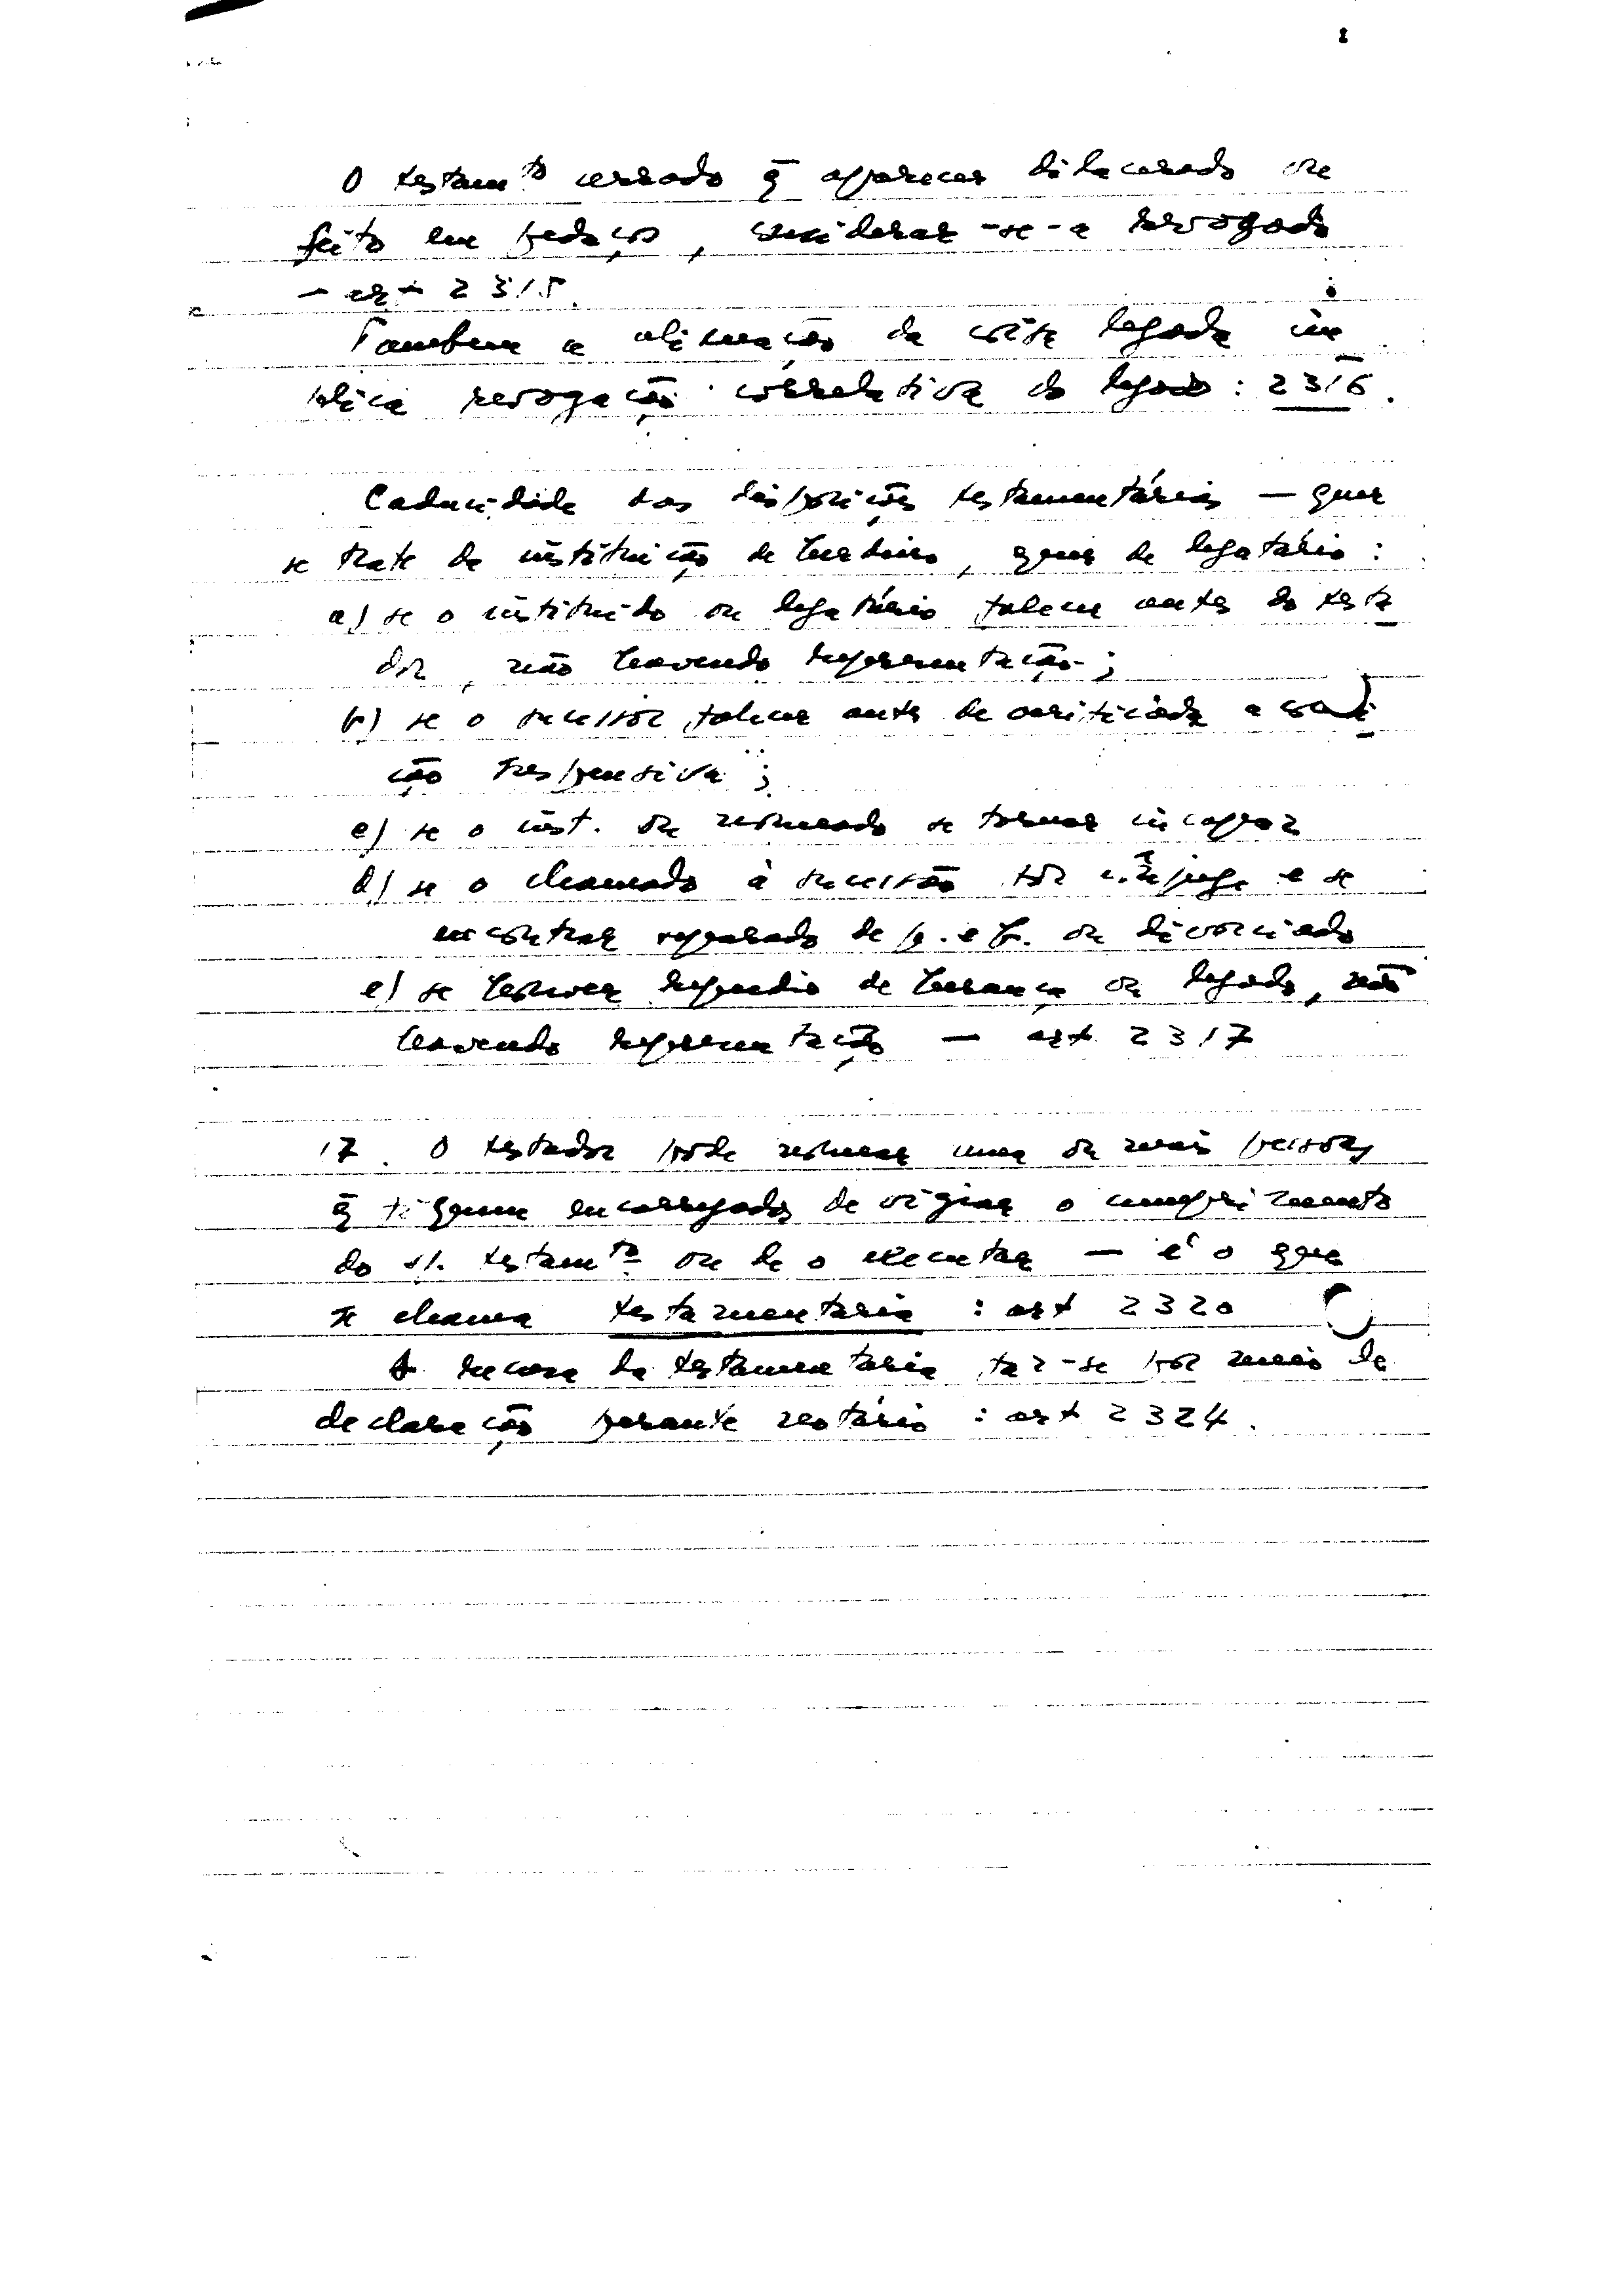 O testamto cerrado q̄ aparecer dilacerado ou
feito em pedaços, considerar-se-a revogado
– art 2315.
Tambem a alienação da coisa legada im
plica revogação correlativa do legado : 2316.
Caducidade das disposições testamentárias — quer
se trate de instituição de herdeiro, quer de legatário :
a) se o instituido ou legatário falecer antes do testa
dor, não havendo representação ;
b) se o sucessor falecer antes de verificada a condi
ção suspensiva ;
c) se o inst. ou nomeado se tornar incapaz
d) se o chamado à sucessão for cônjuge e se
encontrar separado de p. e b. ou divorciado
e) se houver repudio de herança ou legado, não
havendo representação — art 2317
17. O testador pode nomear uma ou mais pessoas
q̄ fiquem encarregadas de vigiar o cumprimento
do s/. testamto ou de o executar — é o que
se chama testamentaria : art 2320
A recusa da testamentaria faz-se por meio de
declaração perante notário : art 2324.